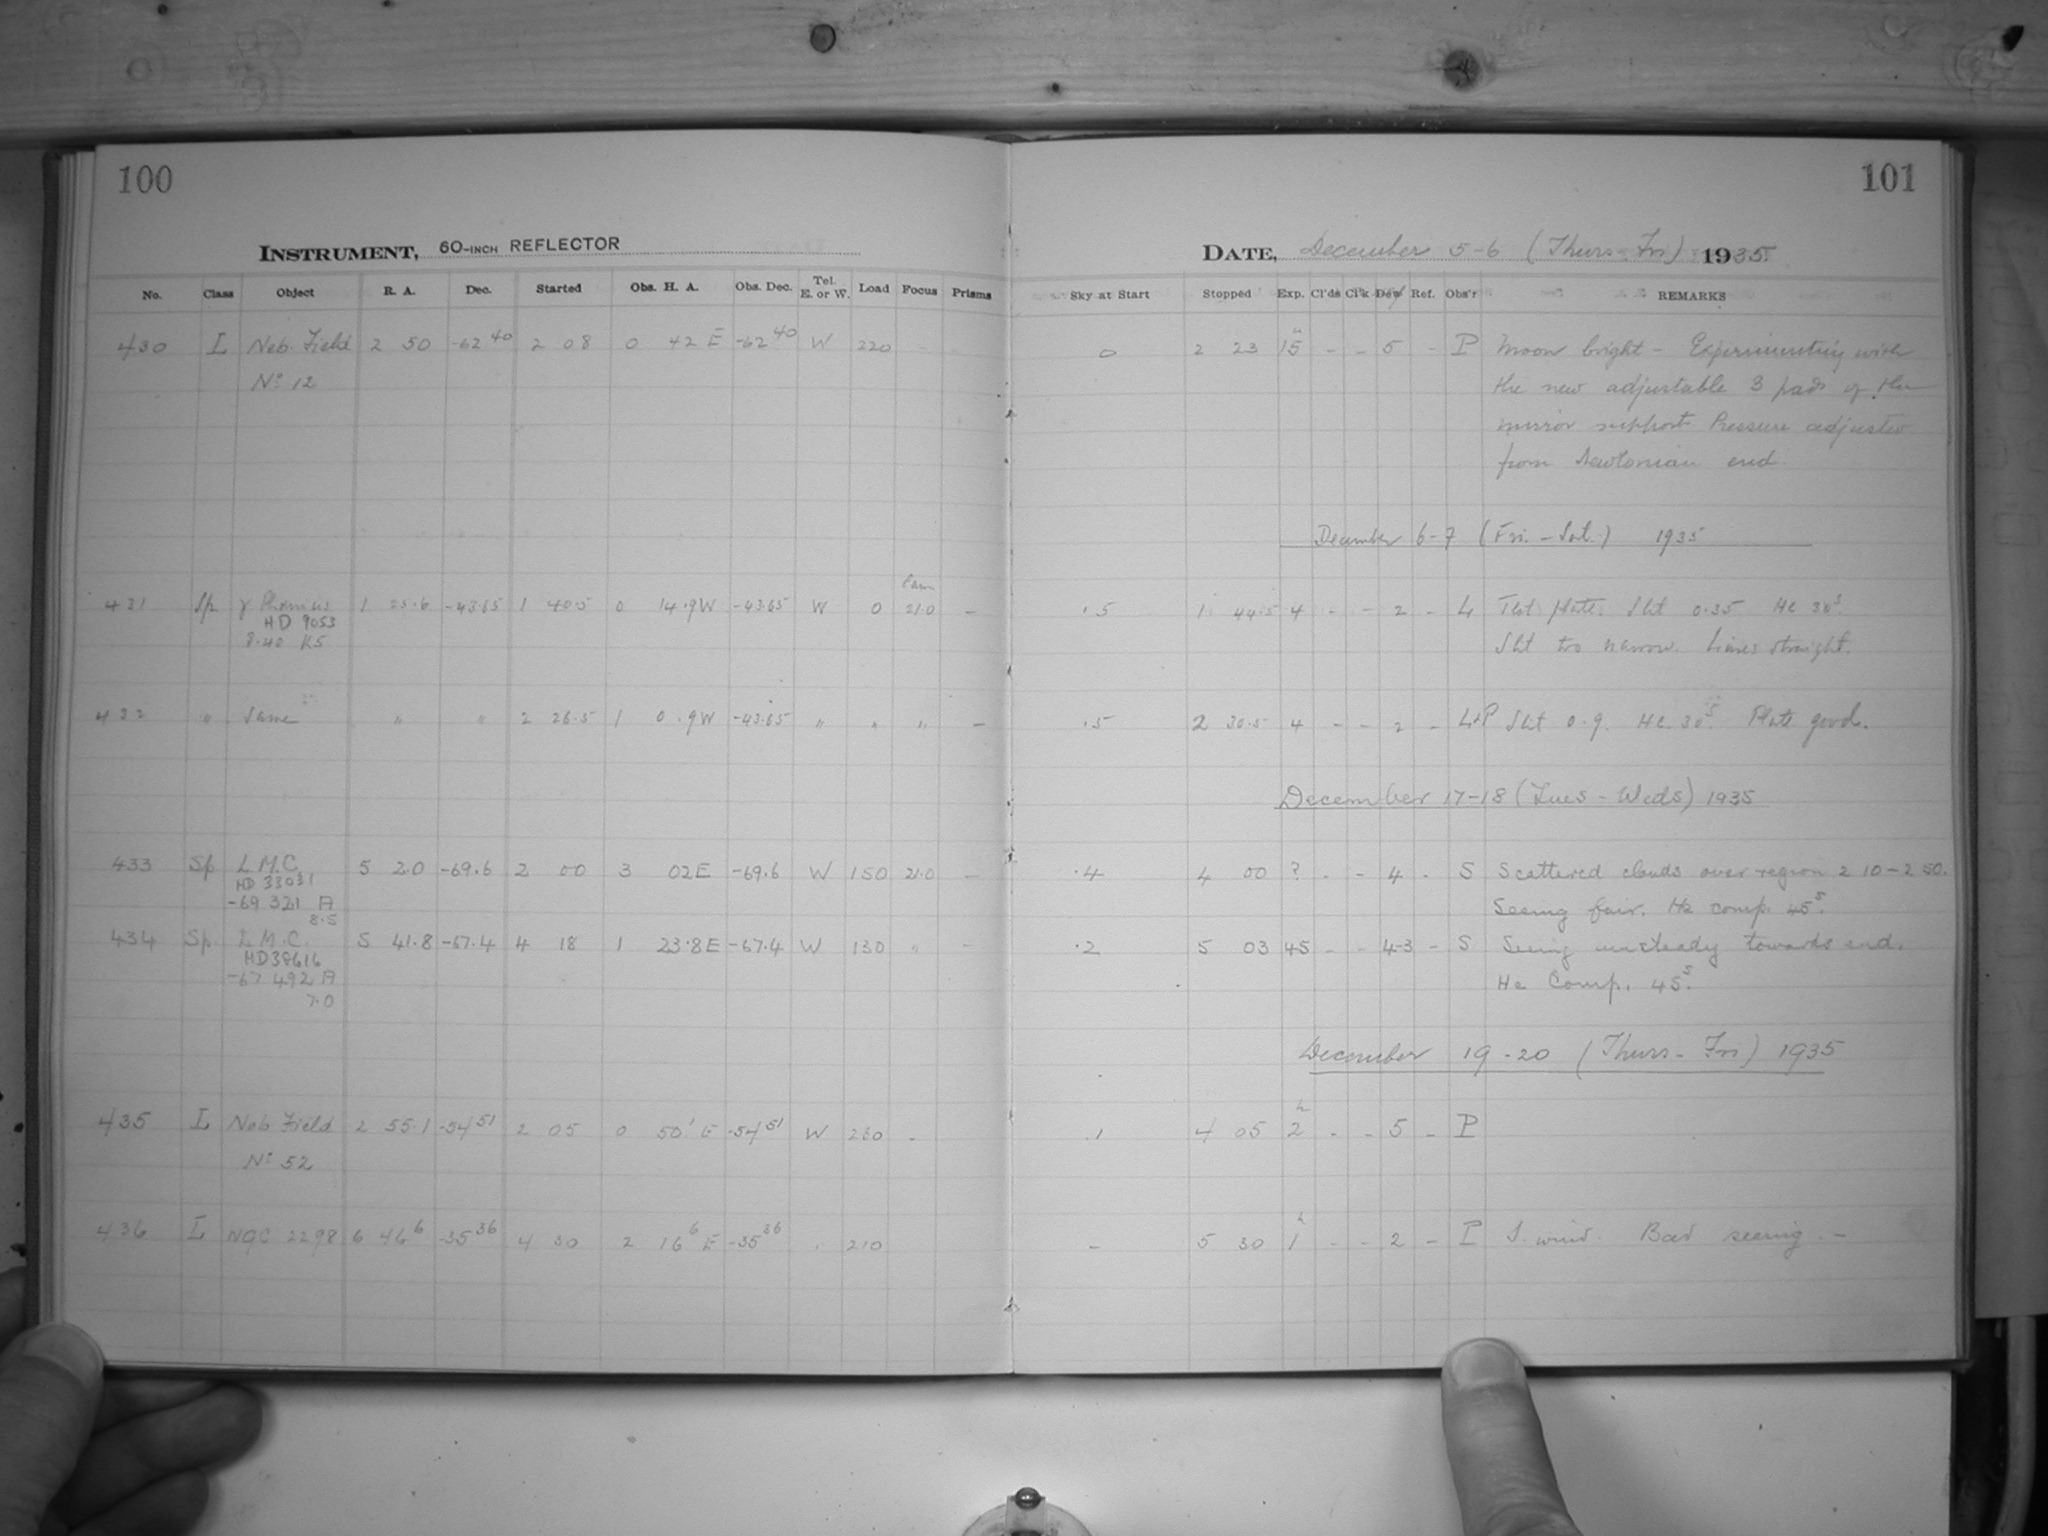 100
101
INSTRUMENT, 60-INCH REFLECTOR
DATE, December 5-6 (Thurs-Fri) 1935
No. Class Object R. A. Dec. Started Obs. H. A. Obs. Dec. Tel. E. or W. Load Focus Prisms Sky at Start Stopped Exp. Cl'ds Cl'k Dew Ref. Obs'r REMARKS
430 I Neb. Field 2 50 -62 40 2 08 0 42 E -62 40 W 220 0 2 23 15 - - 5 - P Moon bright - Experimenting with
No 12 the new adjustable 3 pads of the
mirror support. Pressure adjusted
from Newtonian end.
December 6-7 (Fri. - Sat.) 1935
431 Sp γ Phoenicis 1 25.6 -43.65 1 40.5 0 14.9W -43.65 W 0 21.0 - .5 1 44.5 4 - - 2 - L Test plate. Slit 0.35 He 30s.
HD 9053 Slit too narrow. Lines straight.
8.40 K5
432 " Same " " 2 26.5 1 0.9W -43.65 " " " - .5 2 30.5 4 - - 2 - L+P Slit 0.9. He 30s. Plate good.
December 17-18 (Tues - Weds) 1935
433 Sp L.M.C. 5 2.0 -69.6 2 00 3 02E -69.6 W 150 21.0 .4 4 00 ? - - 4 - S Scattered clouds over region 2 10-2 50.
HD 33031
-69 321 A Seeing fair. He comp. 45s.
8.5
434 Sp L.M.C. 5 41.8 -67.4 4 18 1 23.8E -67.4 W 130 " - .2 5 03 45 - - 4-3 - S Seeing unsteady towards end.
HD38616 He Comp. 45s.
-67 492 A
7.0
December 19-20 (Thurs - Fri) 1935
435 I Neb. Field 2 55.1 -54 51 2 05 0 50' E -54 51 W 230 - .1 4 05 2h - - 5 - P
No 52
436 I NGC 2298 6 46 6 -35 36 4 30 2 16 6 E -35 36 . 210 - 5 30 1h - - 2 - P S. wind. Bad seeing. -